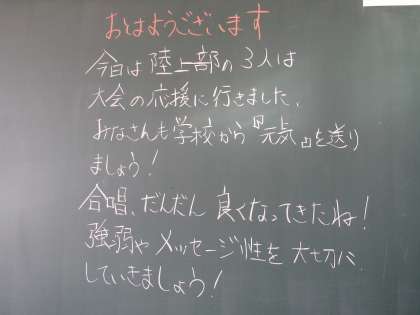 おはようございます
今日は陸上部の3人は
大会の応援に行きました。
みなさんも学校から『元気』を送り
ましょう!
合唱、だんだん良くなってきたね!
強弱やメッセージ性を大切に
していきましょう!